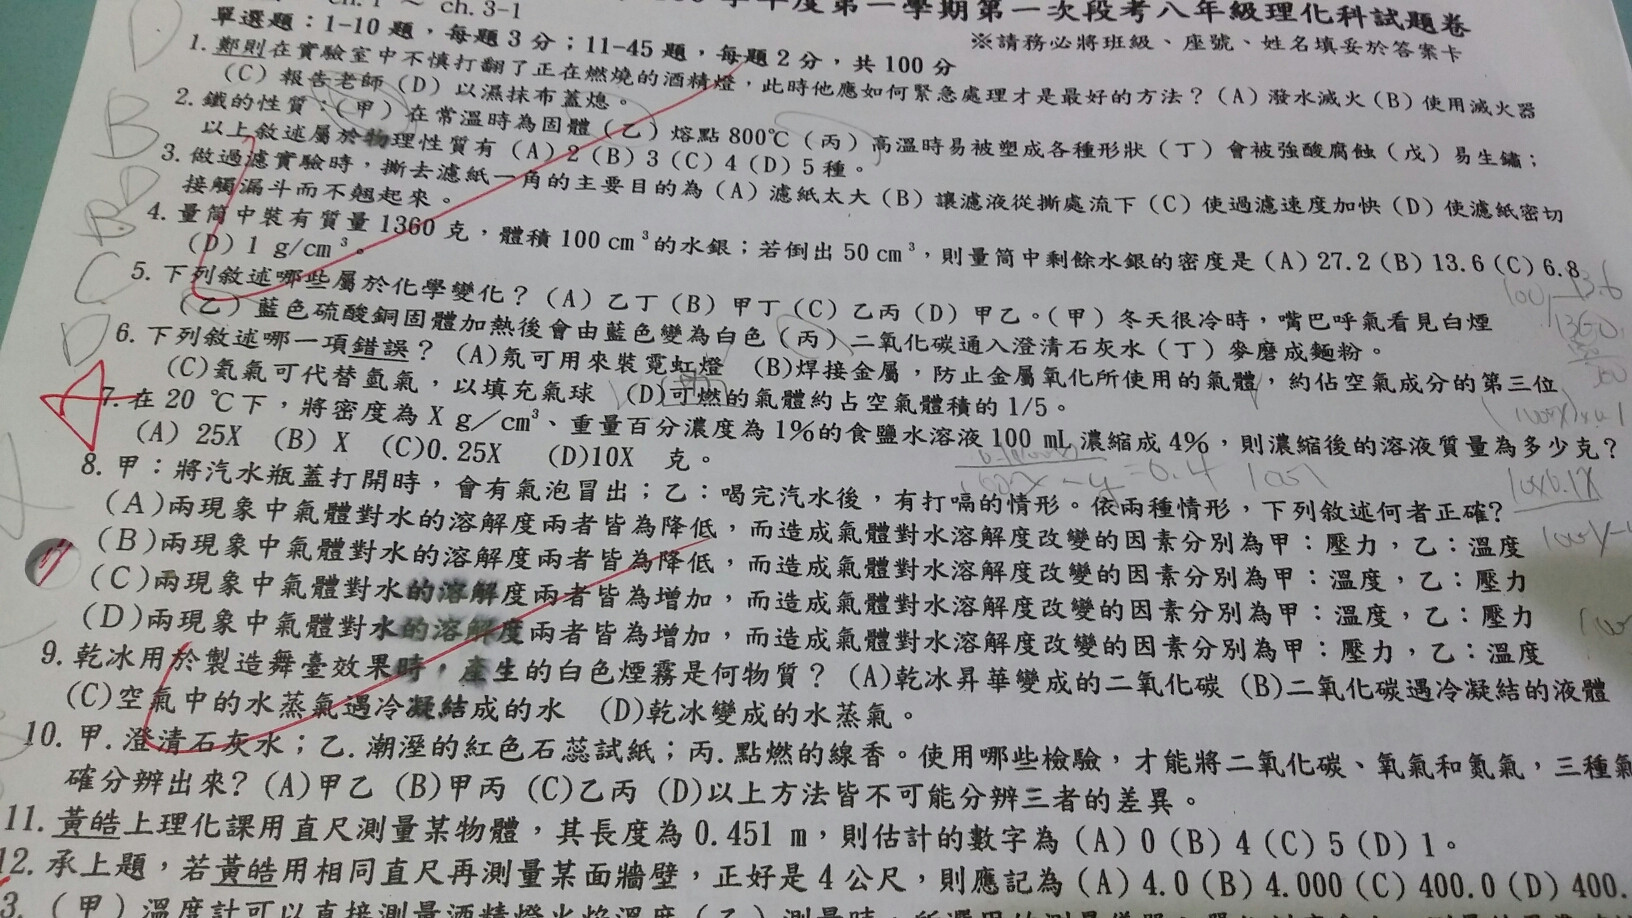 ch.1 ~ ch.3-1
學年度第一學期第一次段考八年級理化科試題卷
單選題：1-10 題，每題 3 分；11-45 題，每題 2 分，共 100 分
※請務必將班級、座號、姓名填妥於答案卡
1. 鄭則在實驗室中不慎打翻了正在燃燒的酒精燈，此時他應如何緊急處理才是最好的方法？(A) 潑水滅火(B) 使用滅火器
(C) 報告老師(D) 以濕抹布蓋熄。
2. 鐵的性質：(甲) 在常溫時為固體(乙) 熔點 800℃ (丙) 高溫時易被塑成各種形狀(丁) 會被強酸腐蝕(戊) 易生鏽；
以上敘述屬於物理性質有 (A) 2 (B) 3 (C) 4 (D) 5 種。
3. 做過濾實驗時，撕去濾紙一角的主要目的為(A) 濾紙太大(B) 讓濾液從撕處流下(C) 使過濾速度加快(D) 使濾紙密切
接觸漏斗而不翹起來。
4. 量筒中裝有質量 1360 克，體積 100 cm³的水銀；若倒出 50 cm³，則量筒中剩餘水銀的密度是(A) 27.2 (B) 13.6 (C) 6.8
(D) 1 g/cm³。
5. 下列敘述哪些屬於化學變化？ (A) 乙丁 (B) 甲丁 (C) 乙丙 (D) 甲乙。(甲) 冬天很冷時，嘴巴呼氣看見白煙
(乙) 藍色硫酸銅固體加熱後會由藍色變為白色 (丙) 二氧化碳通入澄清石灰水(丁) 麥磨成麵粉。
6. 下列敘述哪一項錯誤？ (A)氖可用來裝霓虹燈 (B)焊接金屬，防止金屬氧化所使用的氣體，約佔空氣成分的第三位
(C)氦氣可代替氫氣，以填充氣球 (D)可燃的氣體約占空氣體積的 1/5。
7. 在 20 ℃下，將密度為 X g/cm³、重量百分濃度為 1%的食鹽水溶液 100 mL 濃縮成 4%，則濃縮後的溶液質量為多少克？
(A) 25X (B) X (C)0.25X (D)10X 克。
8. 甲：將汽水瓶蓋打開時，會有氣泡冒出；乙：喝完汽水後，有打嗝的情形。依兩種情形，下列敘述何者正確?
(A)兩現象中氣體對水的溶解度兩者皆為降低，而造成氣體對水溶解度改變的因素分別為甲：壓力，乙：溫度
(B)兩現象中氣體對水的溶解度兩者皆為降低，而造成氣體對水溶解度改變的因素分別為甲：溫度，乙：壓力
(C)兩現象中氣體對水的溶解度兩者皆為增加，而造成氣體對水溶解度改變的因素分別為甲：溫度，乙：壓力
(D)兩現象中氣體對水的溶解度兩者皆為增加，而造成氣體對水溶解度改變的因素分別為甲：壓力，乙：溫度
9. 乾冰用於製造舞臺效果時，產生的白色煙霧是何物質？ (A)乾冰昇華變成的二氧化碳 (B)二氧化碳遇冷凝結的液體
(C)空氣中的水蒸氣遇冷凝結成的水 (D)乾冰變成的水蒸氣。
10. 甲.澄清石灰水；乙.潮溼的紅色石蕊試紙；丙.點燃的線香。使用哪些檢驗，才能將二氧化碳、氧氣和氮氣，三種氣
確分辨出來？(A)甲乙 (B)甲丙 (C)乙丙 (D)以上方法皆不可能分辨三者的差異。
11. 黃皓上理化課用直尺測量某物體，其長度為 0.451 m，則估計的數字為 (A) 0 (B) 4 (C) 5 (D) 1。
12. 承上題，若黃皓用相同直尺再測量某面牆壁，正好是 4 公尺，則應記為 (A) 4.0 (B) 4.000 (C) 400.0 (D) 400.
3. (甲) 溫度計可以直接測量酒精燈火焰溫度 (乙) 測量時，
D
B
D
B
C
D